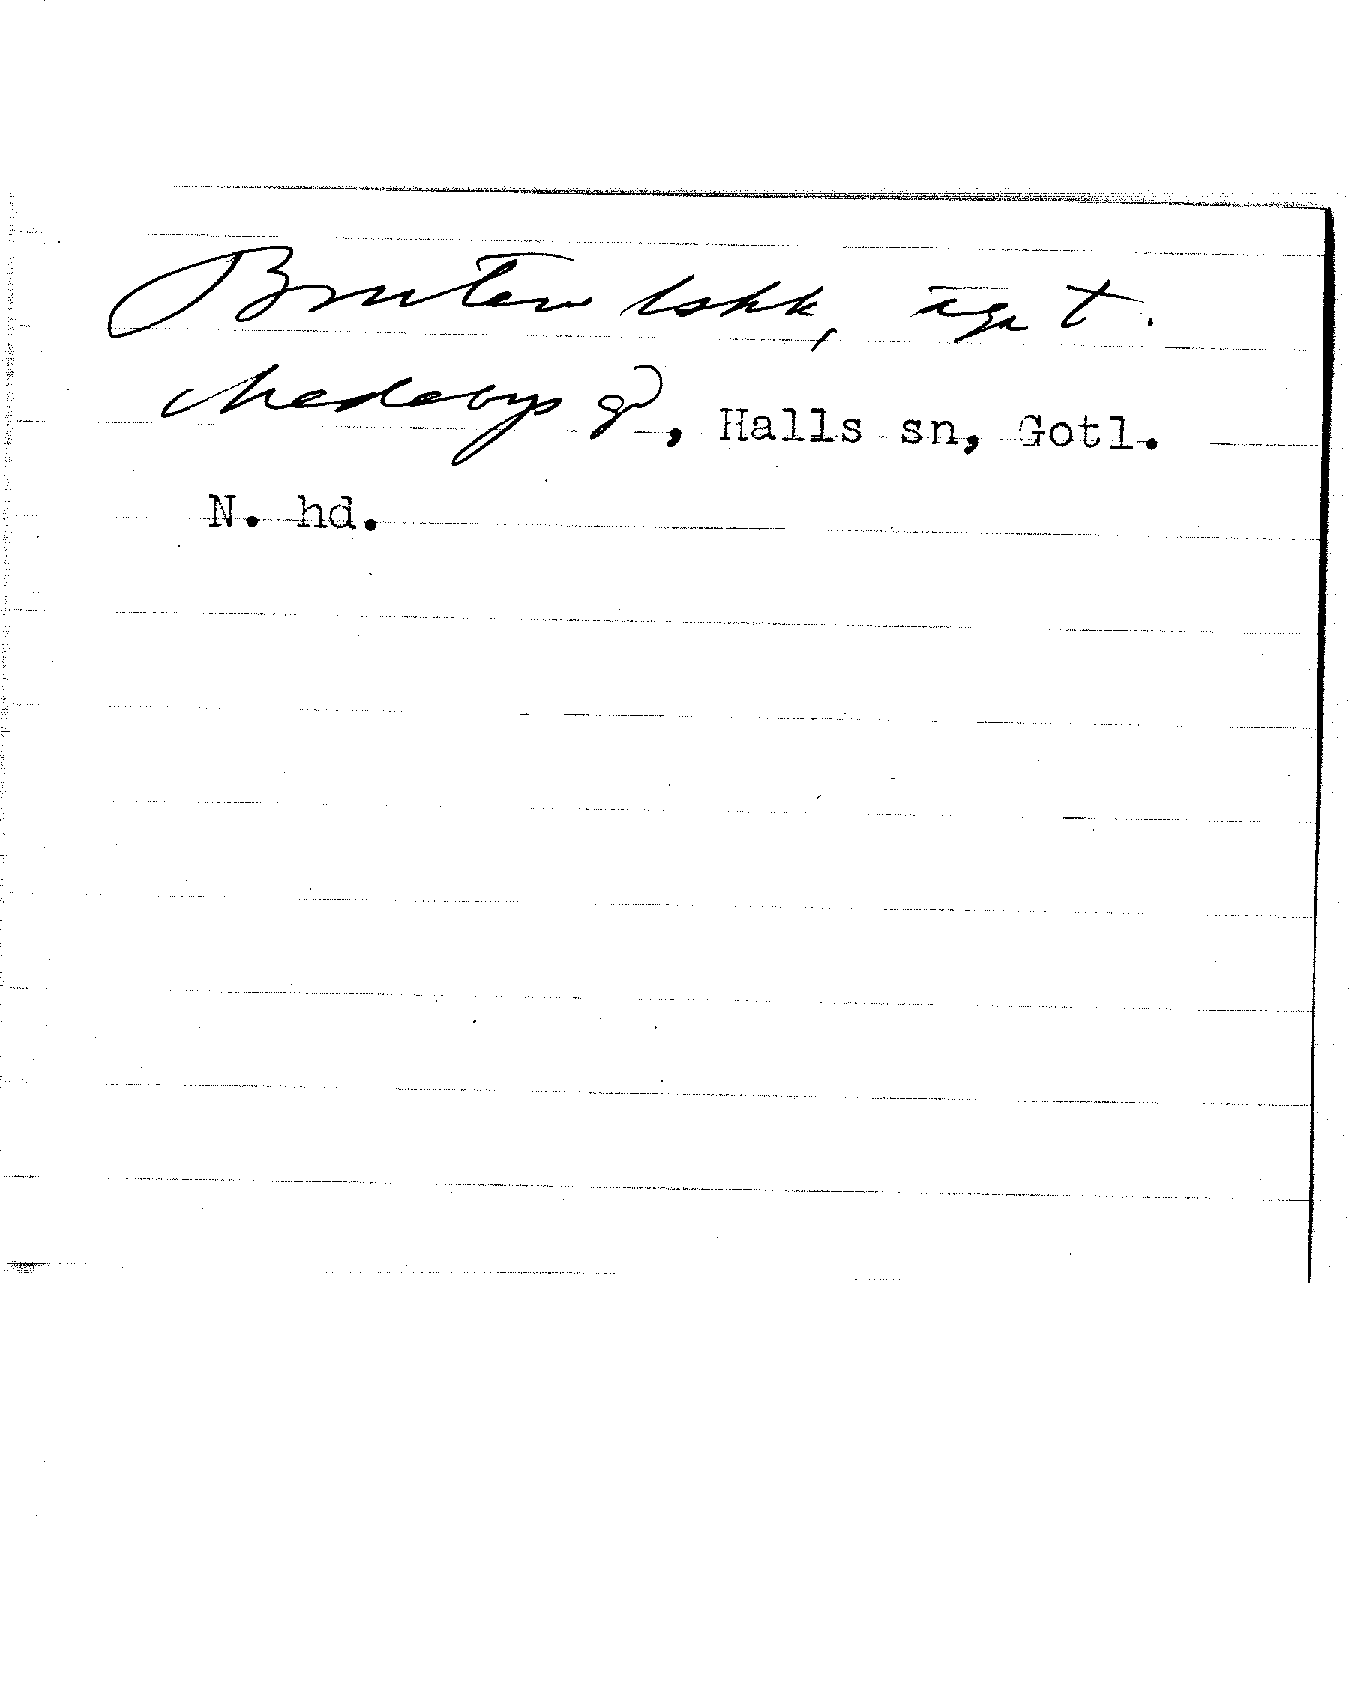 Bruten lokk, äga t.
Medebys gd, Halls sn, Gotl.
N. hd.